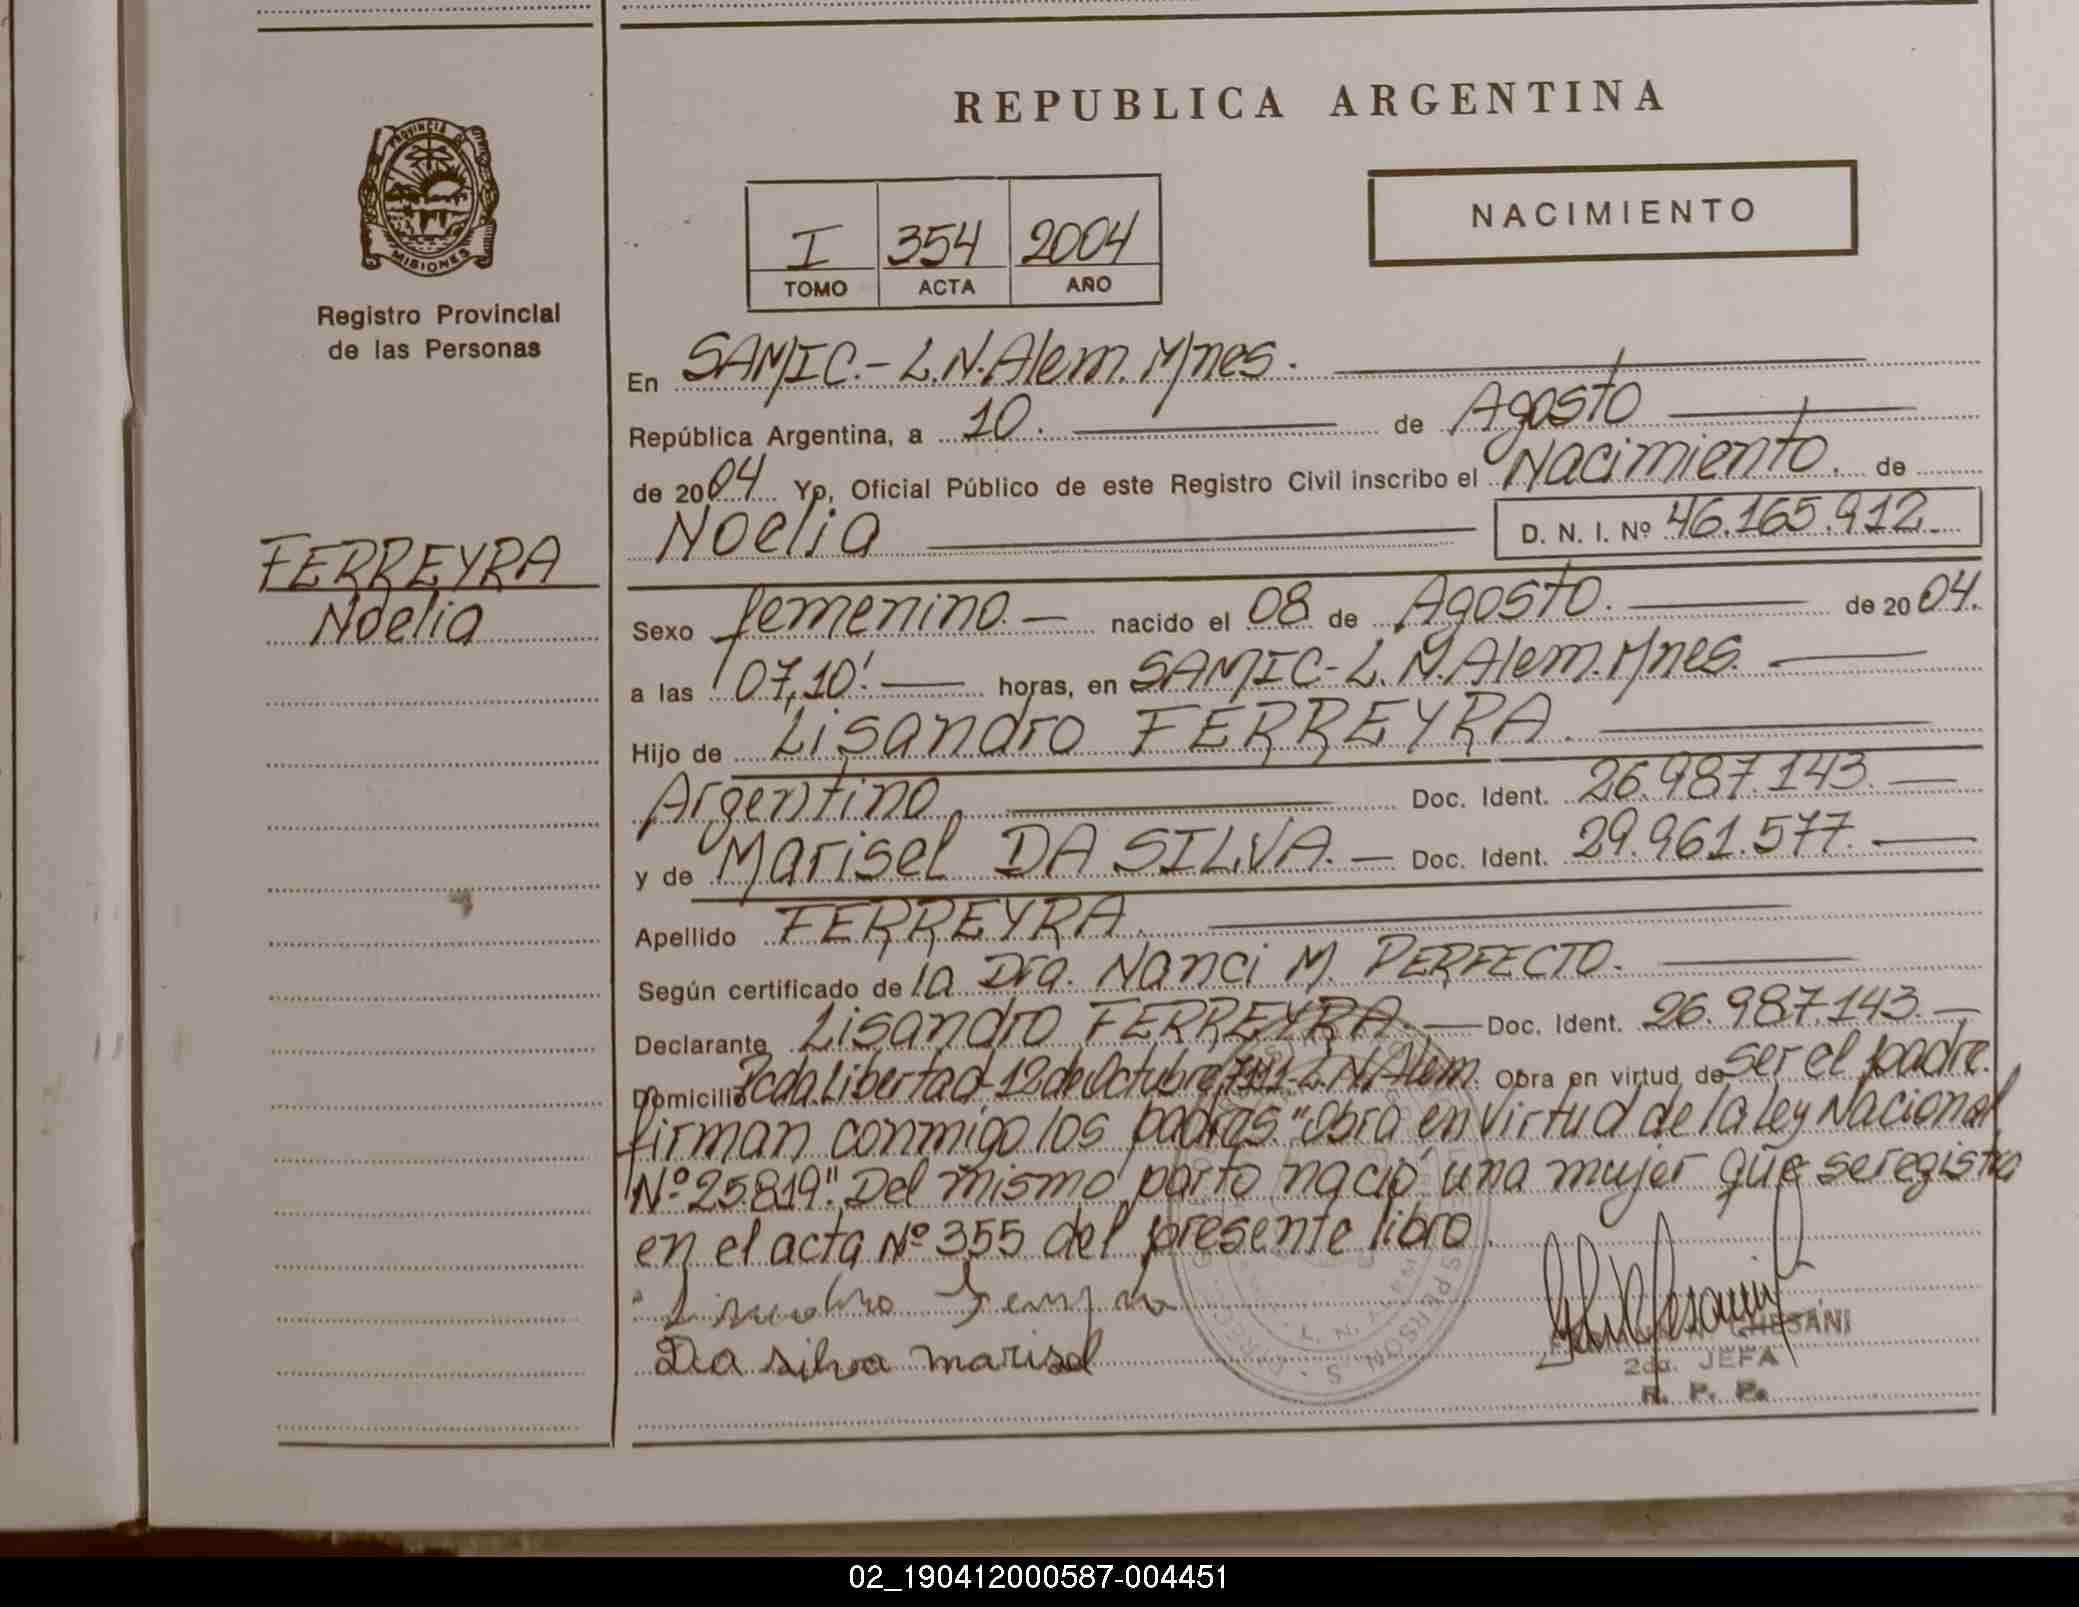 REPUBLICA ARGENTINA
PROVINCIA DE
MISIONES
Registro Provincial
de las Personas
I 354 2004
TOMO ACTA AÑO
NACIMIENTO
FERREYRA
Noelia
En SAMIC.- L.N.Alem. Mnes.
República Argentina, a 10. de Agosto
de 2004 Yo, Oficial Público de este Registro Civil inscribo el Nacimiento. de
Noelia D. N. I. Nº 46.165.912
Sexo femenino. nacido el 08 de Agosto. de 2004.
a las 07,10' horas, en SAMIC- L.N.Alem. Mnes.
Hijo de Lisandro FERREYRA.
Argentino. Doc. Ident. 26.987.143.
y de Marisel DA SILVA. Doc. Ident. 29.961.577.
Apellido FERREYRA.
Según certificado de la Dra. Nanci M. PERFECTO.
Declarante Lisandro FERREYRA. Doc. Ident. 26.987.143.
Domicilio Pcda.Libertad-12 de Octubre L.N.Alem. Obra en virtud de ser el padre.
firman conmigo los padres."Obra en virtud de la ley Nacional
Nº 25.819". Del mismo parto nació una mujer que se registra
en el acta Nº 355 del presente libro.
Lisandro Ferreyra
Da silva marisel
GHESANI
2da. JEFA
R. P. P.
02_190412000587-004451